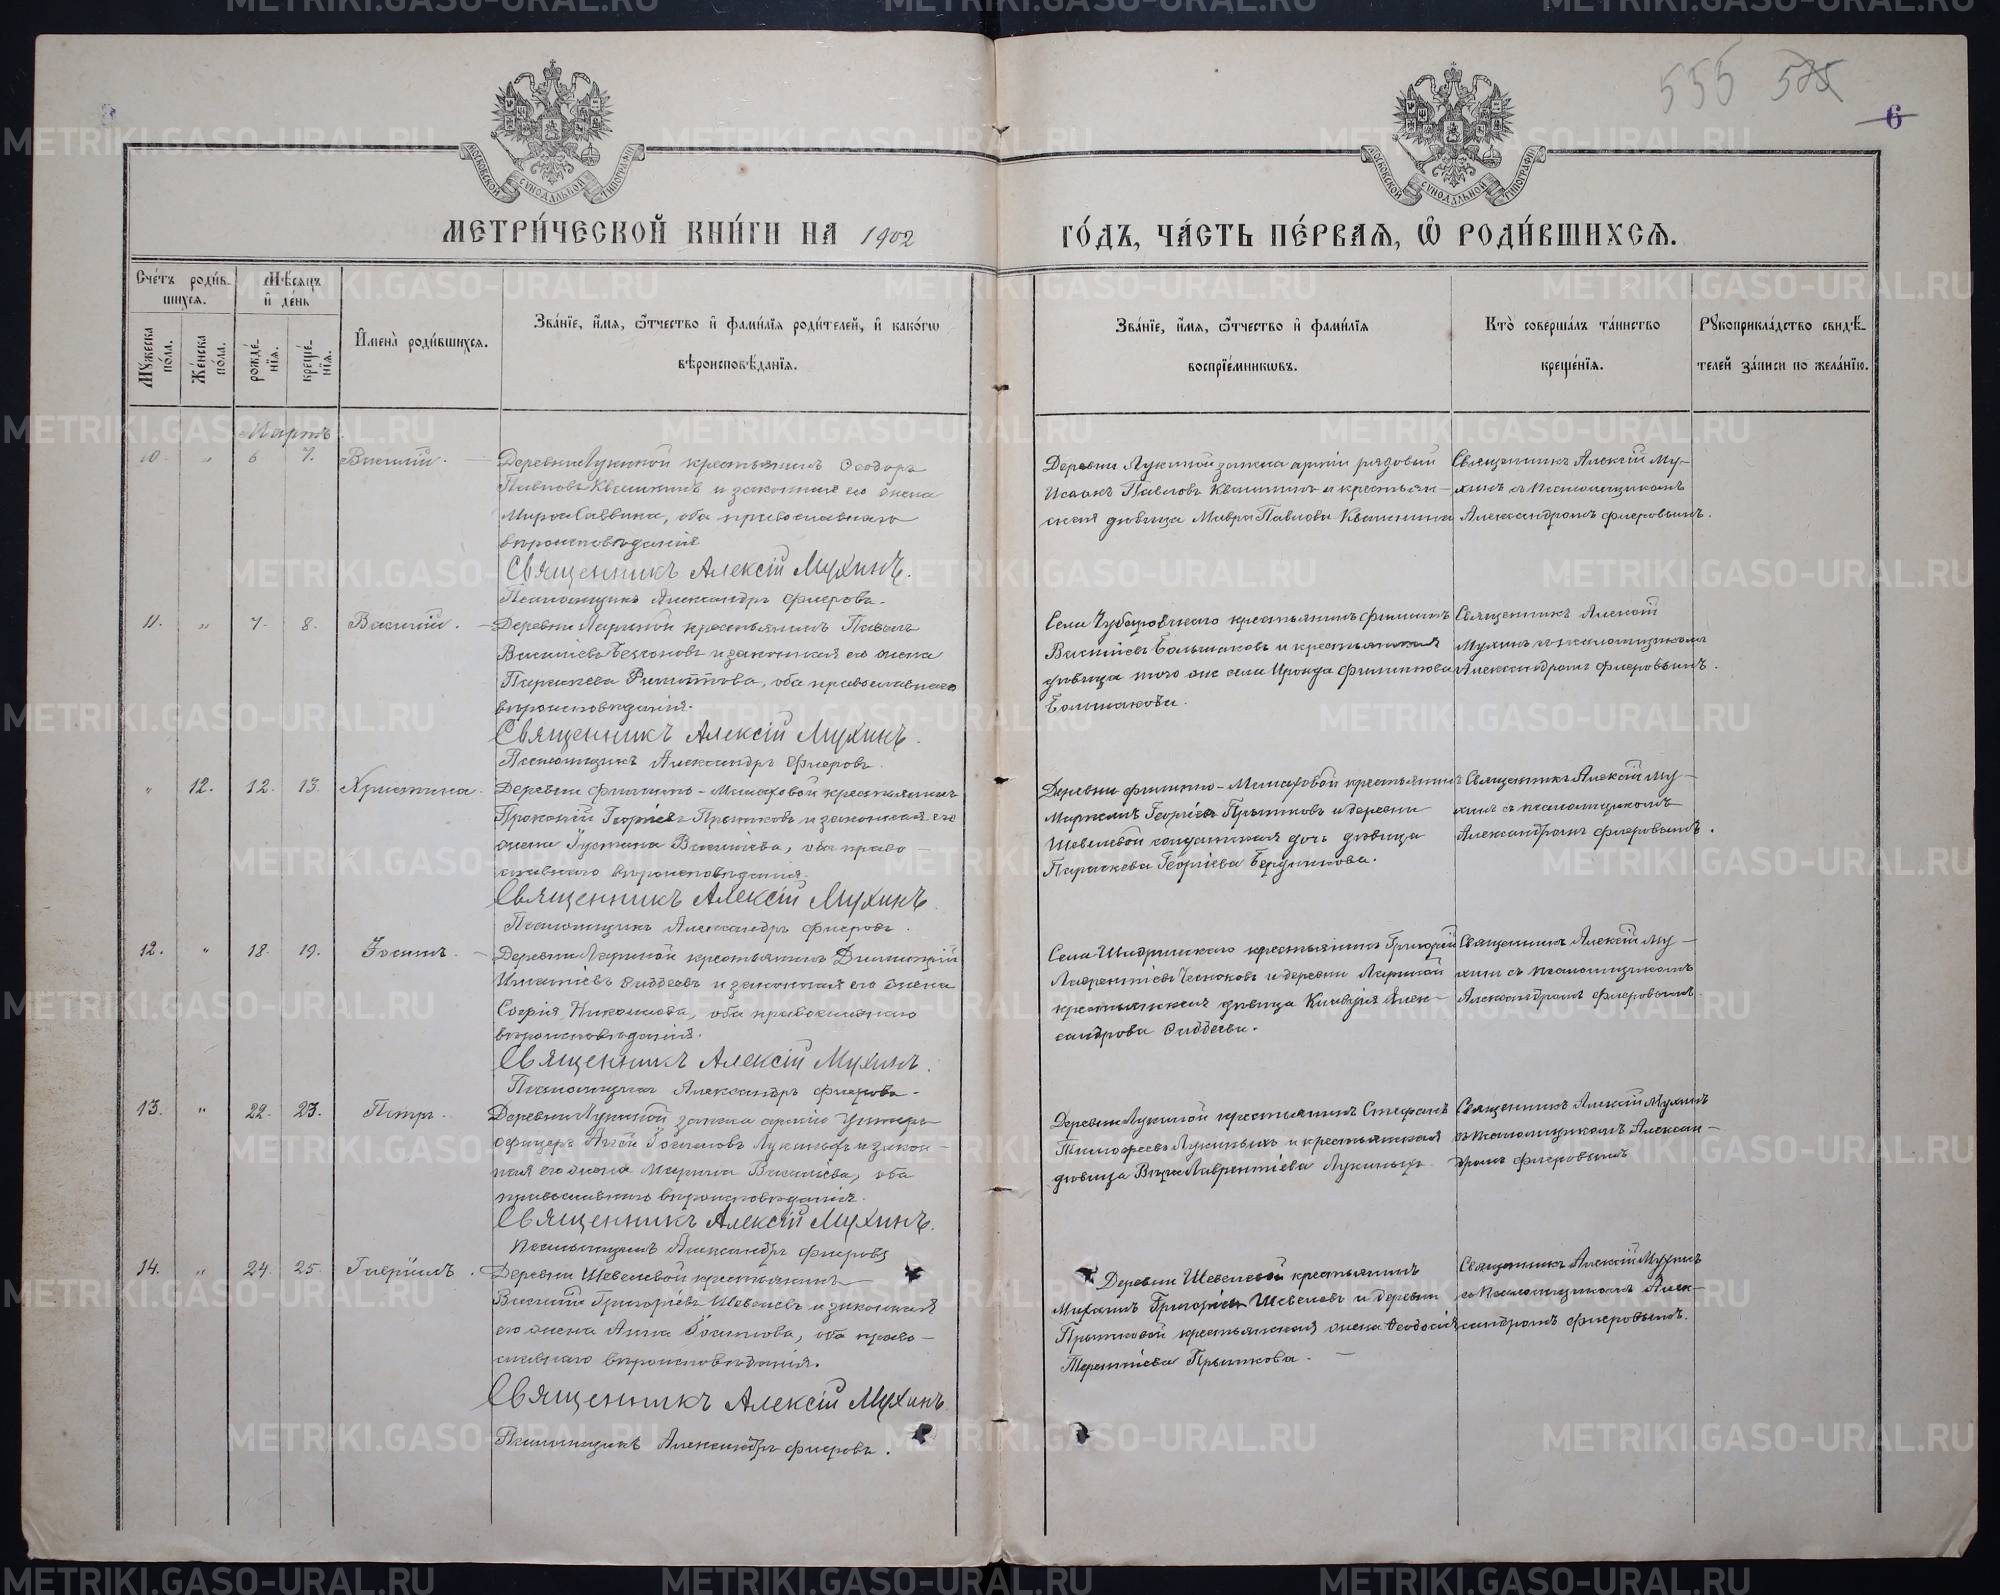 556 525
6
МОСКОВСКОЙ СѴНОДАЛЬНОЙ ТИПОГРАФІИ
МОСКОВСКОЙ СѴНОДАЛЬНОЙ ТИПОГРАФІИ
МЕТРИ́ЧЕСКОЙ КНИ́ГИ НА 1902
ГО́ДЪ, ЧА́СТЬ ПЕ́РВАѦ, Ѿ РОДИ́ВШИХСѦ.
Сче́тъ роди́в-
шихсѧ.
Мѣ́сѧцъ
и҆ де́нь
Мꙋ́жеска по́ла.
Же́нска по́ла.
рожде́-
нїѧ.
креще́-
нїѧ.
И҆мена̀ роди́вшихсѧ.
Зва́нїе, и҆́мѧ, ѻ҆́тчество и҆ фами́лїѧ роди́телей, и҆ како́гѡ
вѣроисповѣ́данїѧ.
Зва́нїе, и҆́мѧ, ѻ҆́тчество и҆ фами́лїѧ
воспрїе́мникѡвъ.
Кто̀ соверша́лъ та́инство
креще́нїѧ.
Рꙋкоприкла́дство свидѣ́-
телей за́писи по жела́нїю.
Мартъ
10 " 6 7. Василій.
Деревни Лукиной крестьянинъ Ѳеодоръ
Павловъ Квашнинъ и законная его жена
Мавра Саввина, оба православнаго
вѣроисповѣданія
Священникъ Алексій Мухинъ.
Псаломщикъ Александръ Флеровъ.
Деревни Лукиной запаса арміи рядовой
Исаакъ Павловъ Квашнинъ и крестьян-
ская дѣвица Мавра Павлова Квашнина
Священникъ Алексій Му-
хинъ съ псаломщикомъ
Александромъ Флеровымъ.
11. " 7. 8. Василій.
Деревни Лариной крестьянинъ Павелъ
Василіевъ и законная его жена
Параскева Филиппова, оба православнаго
вѣроисповѣданія.
Священникъ Алексій Мухинъ.
Псаломщикъ Александръ Флеровъ.
Села крестьянинъ Филиппъ
Василіевъ Большаковъ и крестьянская
дѣвица того же села Ираида Филиппова
Большакова.
Священникъ Алексій
Мухинъ съ псаломщикомъ
Александромъ Флеровымъ.
" 12. 12. 13. Христина.
Деревни крестьянинъ
Прокопій Георгіевъ Прытковъ и законная его
жена Іустина Василіева, оба право-
славнаго вѣроисповѣданія.
Священникъ Алексій Мухинъ.
Псаломщикъ Александръ Флеровъ.
Деревни крестьянинъ
Маркелъ Георгіевъ Прытковъ и деревни
Шевелевой солдатская дочь дѣвица
Параскева Георгіева Бердникова.
Священникъ Алексій Му-
хинъ съ псаломщикомъ
Александромъ Флеровымъ.
12. " 18. 19. Іосифъ.
Деревни Лариной крестьянинъ Димитрій
Игнатіевъ Ѳаддеевъ и законная его жена
Софія Николаева, оба православнаго
вѣроисповѣданія.
Священникъ Алексій Мухинъ.
Псаломщикъ Александръ Флеровъ.
Села крестьянинъ Григорій
Лаврентіевъ Чесноковъ и деревни Лариной
крестьянская дѣвица Клавдія Алек-
сандрова Ѳаддеева.
Священникъ Алексій Му-
хинъ съ псаломщикомъ
Александромъ Флеровымъ.
13. " 22. 23. Петръ.
Деревни Лукиной запаса арміи унтеръ-
офицеръ Іосифовъ Лукиныхъ и закон-
ная его жена Марина Василіева, оба
православнаго вѣроисповѣданія.
Священникъ Алексій Мухинъ.
Псаломщикъ Александръ Флеровъ
Деревни Лукиной крестьянинъ Стефанъ
Тимофеевъ Лукиныхъ и крестьянская
дѣвица Вѣра Лаврентіева Лукиныхъ.
Священникъ Алексій Мухинъ
съ псаломщикомъ Алексан-
дромъ Флеровымъ
14. " 24. 25. Гавріилъ.
Деревни Шевелевой крестьянинъ
Василій Григоріевъ Шевелевъ и законная
его жена Анна Іосифова, оба право-
славнаго вѣроисповѣданія.
Священникъ Алексій Мухинъ
Псаломщикъ Александръ Флеровъ.
Деревни Шевелевой крестьянинъ
Михаилъ Григоріевъ Шевелевъ и деревни
Прытковой крестьянская жена Ѳеодосія
Терентіева Прыткова.
Священникъ Алексій Мухинъ
съ псаломщикомъ Алек-
сандромъ Флеровымъ.
METRIKI.GASO-URAL.RU